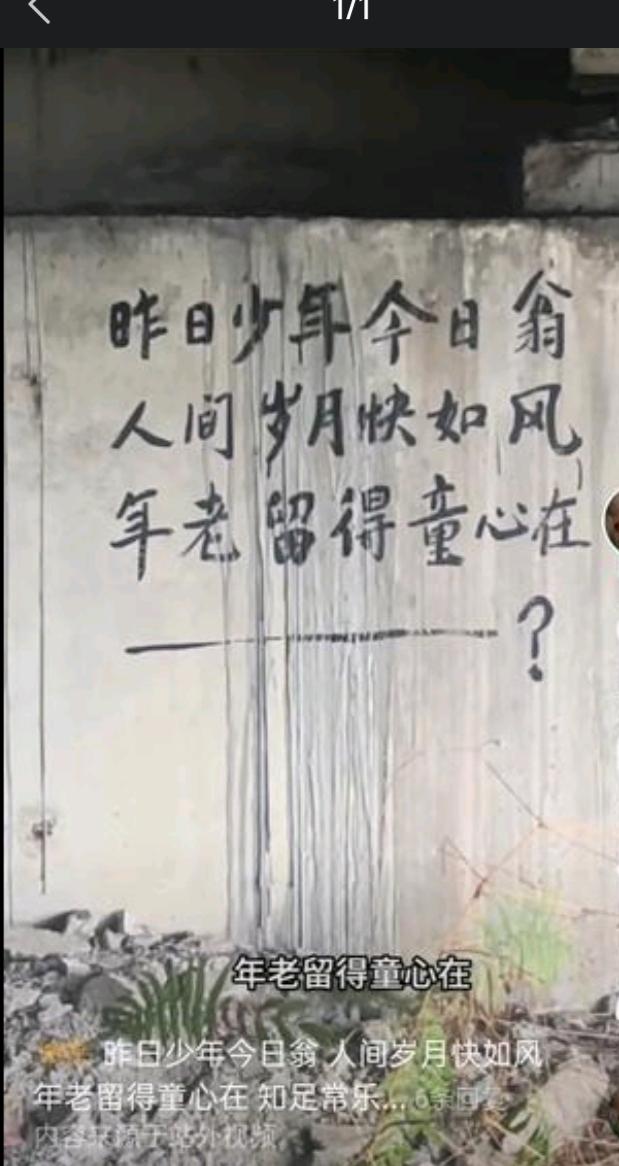 1/1
昨日少年今日翁
人间岁月快如风
年老留得童心在
?
年老留得童心在
昨日少年今日翁 人间岁月快如风
年老留得童心在 知足常乐... 6条回复
内容来源于站外视频